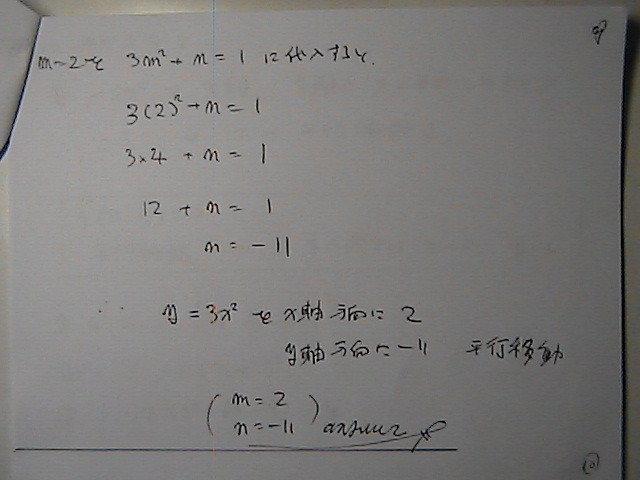 m=2を 3m²+n=1 に代入すると.
3(2)²+n=1
3×4 + n = 1
12 + n = 1
n = -11
∴ y=3x² を x軸方向に 2
y軸方向に -11 平行移動
(m=2
n=-11) answer